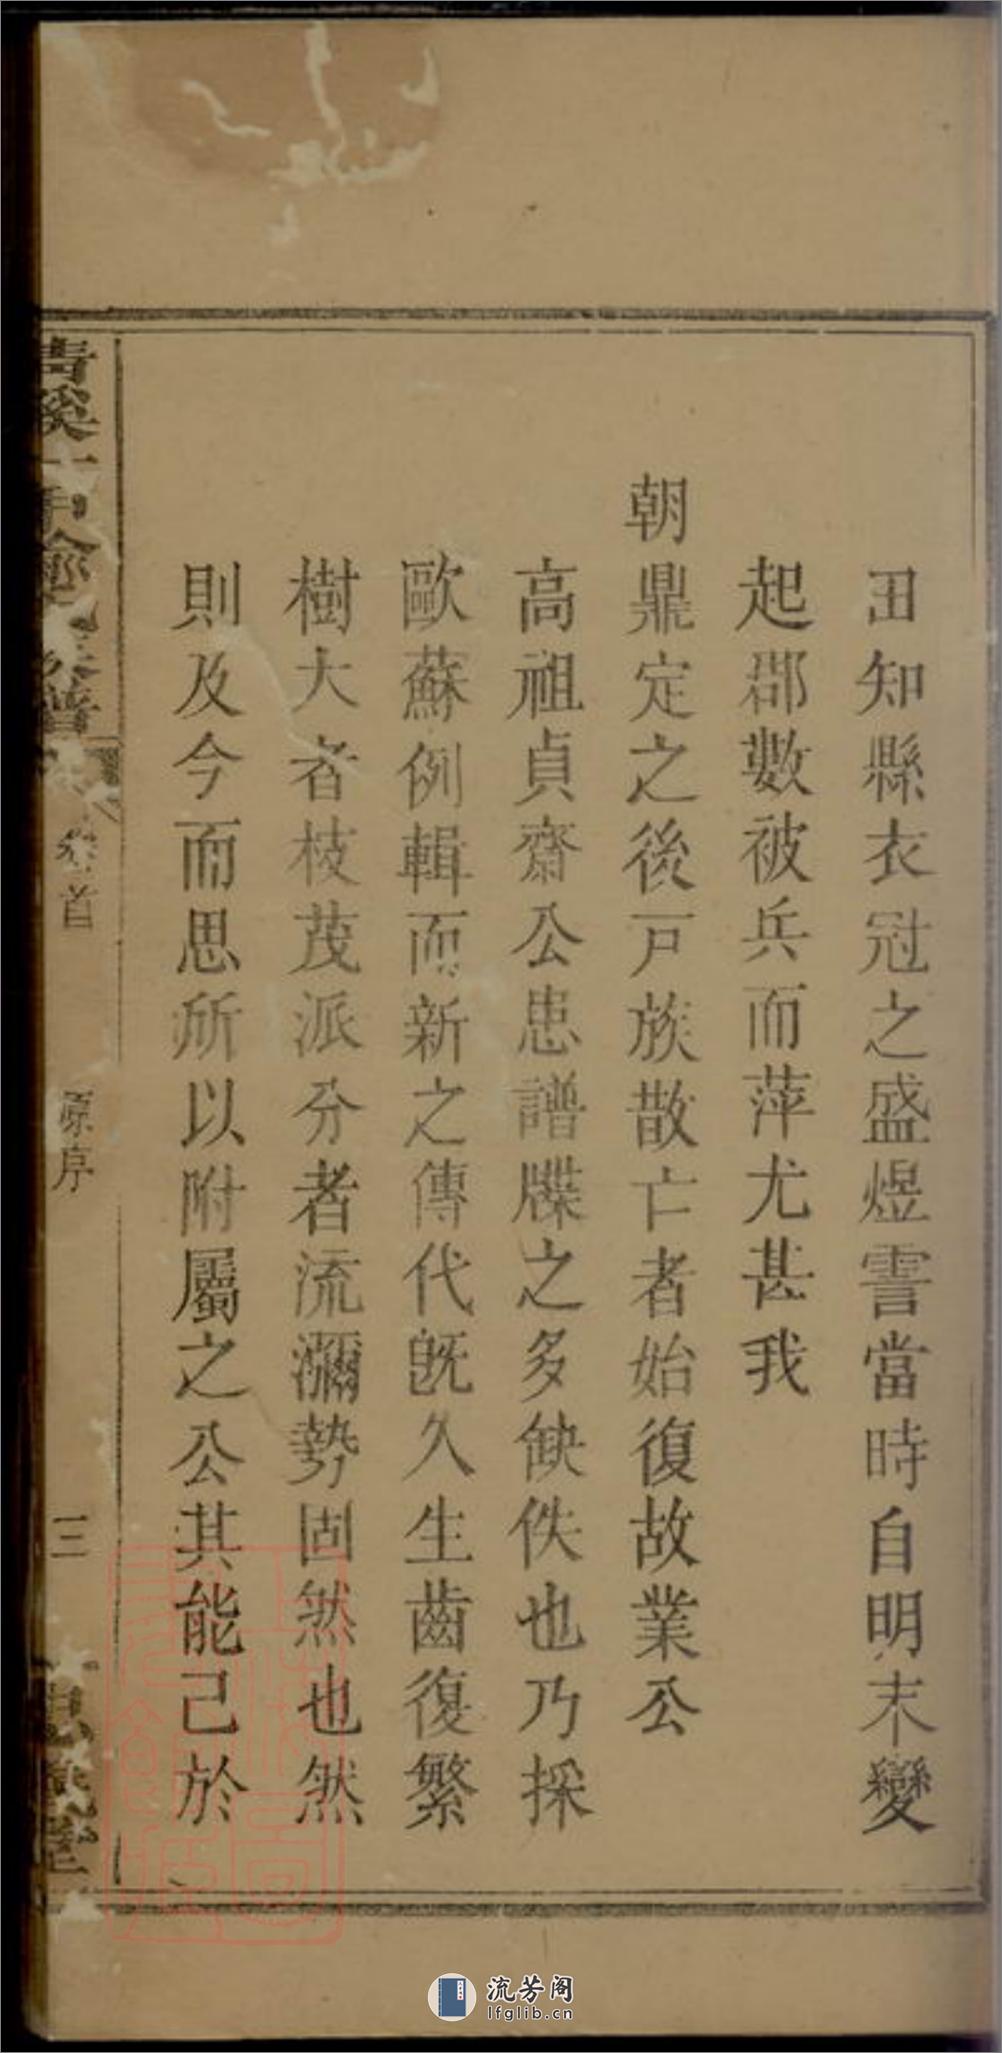 田知縣衣冠之盛煜霅當時自明末變
起郡數被兵而萍尤甚我
朝鼎定之後戸族散亡者始復故業公
高祖貞齋公患譜牒之多缺佚也乃採
歐蘇例輯而新之傳代旣久生齒復繁
樹大者枝茂派分者流瀰勢固然也然
則及今而思所以附屬之公其能己於
卷首
原序
三
流芳阁
lfglib.cn